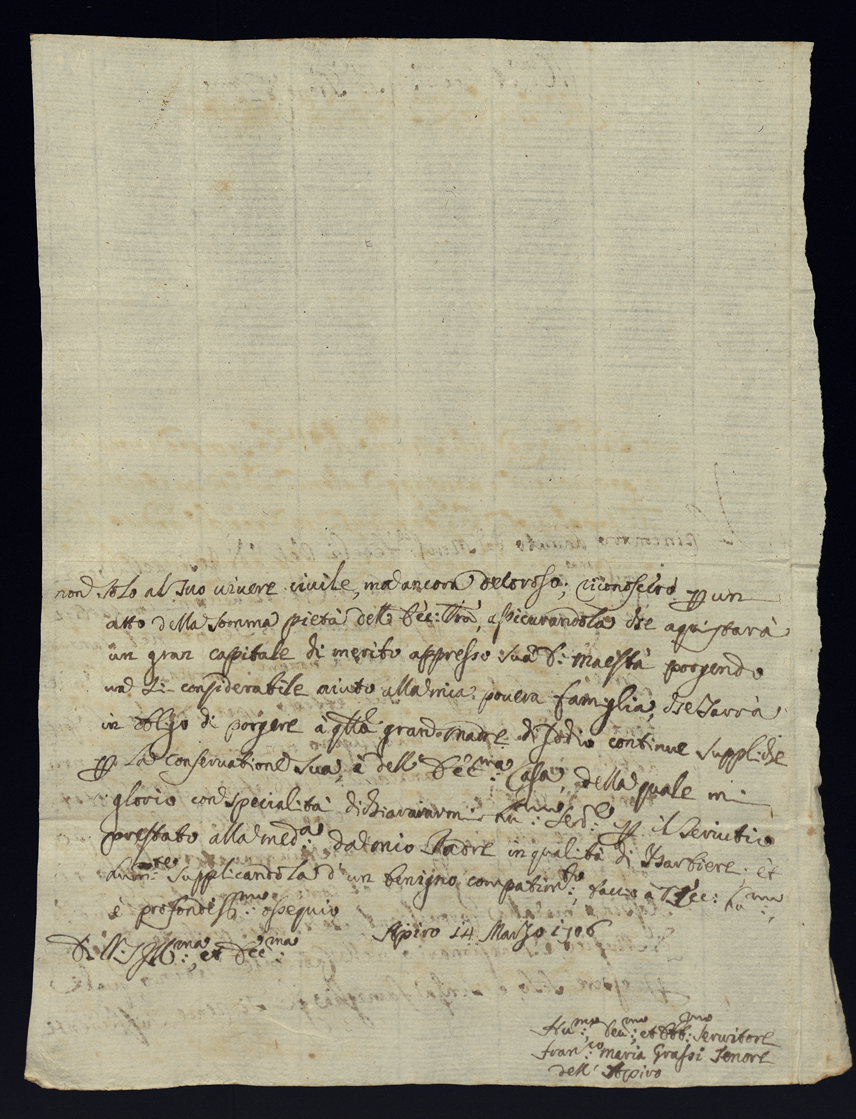 non solo al suo vivere civile, ma ancora decoroso; riconoscerò p un
atto della somma pietà dell' Ecc: Vra, assicurandola che aquistarà
un gran cappitale di merito appresso sua D: Maestà porgendo
un sì considerabile aiuto alla mia povera famiglia, che sarrà
in obligo di porgere a qlla gran Madre di Iddio continue suppliche
p la conservatione sua, e dell' Ecc:ma Casa, della quale mi
glorio con specialità dichiararmi hu:mo p il servitio
prestato alla med:a dal mio Padre in qualità di Barbiere; et
supplicandola d' un benigno compatim:to, faccio a V: Ecc: hu:mo,
e profondiss:mo ossequio
Di V: S: Ill:ma, et Ecc:ma Apiro 14 Marzo 1706
Hu:mo, Dev:mo, et Obb:mo Servitore
Fran:co Maria Grassi Tenore
dell' Apiro